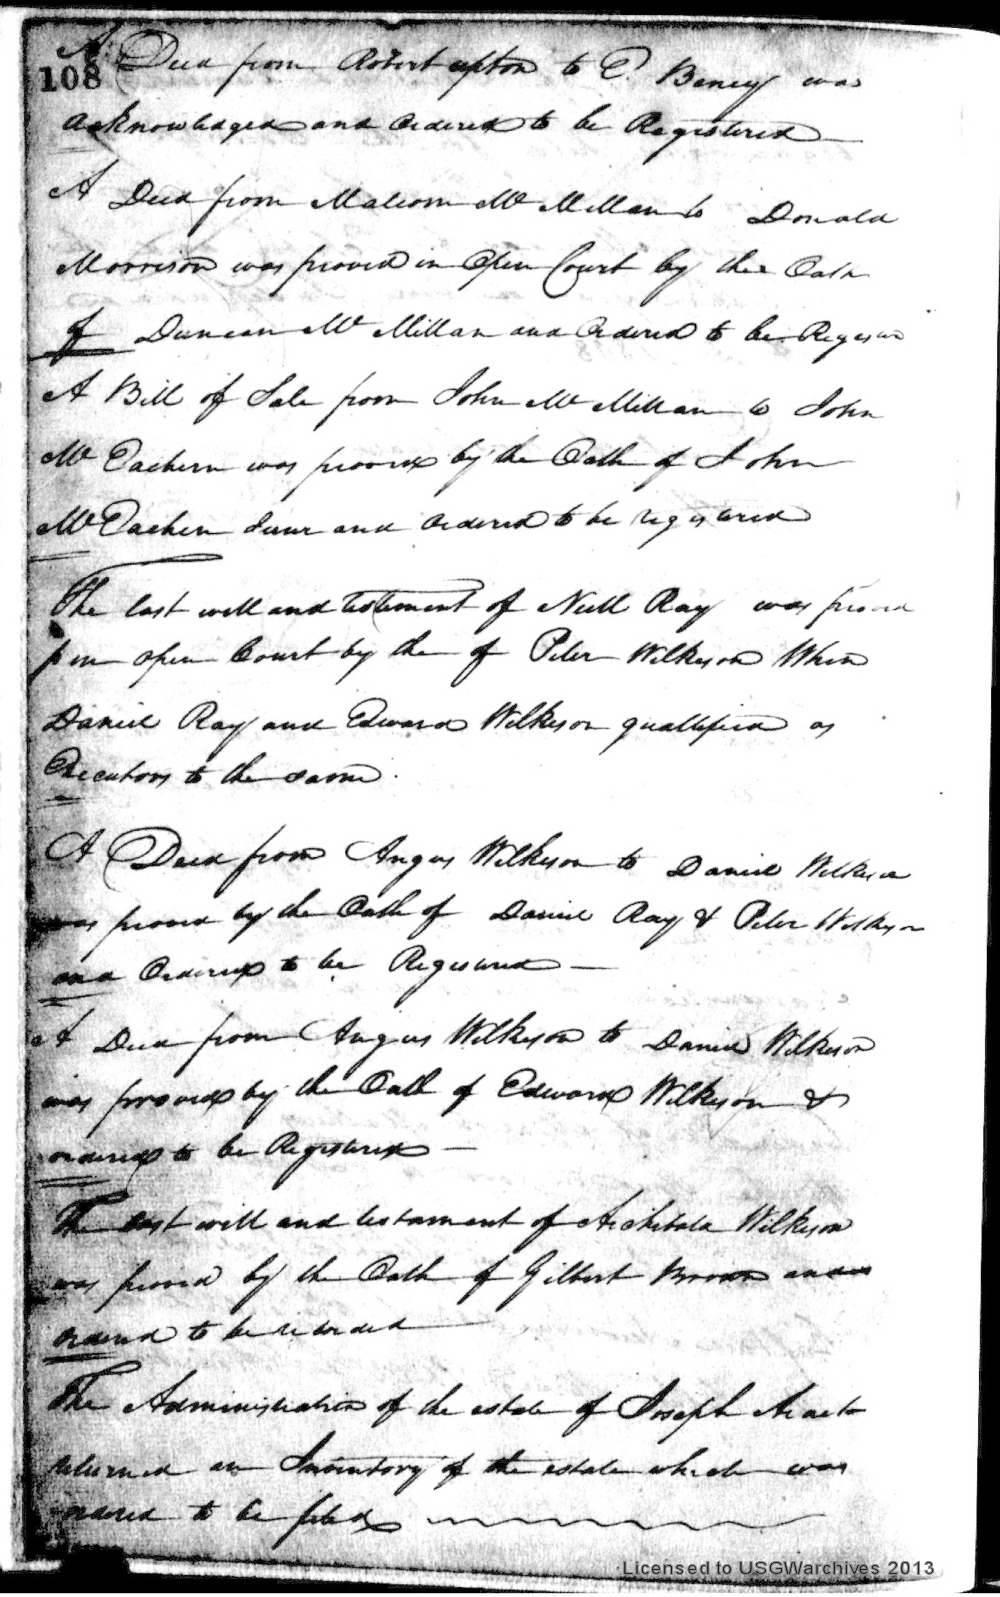 108
A Deed from Robert upton to E. Beney was
acknowledged and ordered to be Registered
A Deed from Malcom Mc Millan to Donald
Morrison was proved in Open Court by the Oath
of Duncan Mc Millan and Ordered to be
A Bill of Sale from John Mc Millan to John
Mc Eachern was proved by the Oath of John
Mc Eachern Junr and ordered to be registered
The last will and testement of Neill Ray was proved
in open Court by the of Peter Wilkeson When
Daniel Ray and Edward Wilkeson quallified as
Executors to the same
A Deed from Angus Wilkeson to Daniel Wilkeson
was proved by the Oath of Daniel Ray & Peter Wilkeson
and Ordered to be Registered
A Deed from Angus Wilkeson to Daniel Wilkeson
was proved by the Oath of Edward Wilkeson &
ordered to be Registered
The last will and testament of Archibald Wilkeson
was proved by the Oath of Gilbert Brown and
ordered to be recorded
The Administration of the estate of Joseph
returned an Inventory of the estate which was
ordered to be filed
Licensed to USGWarchives 2013